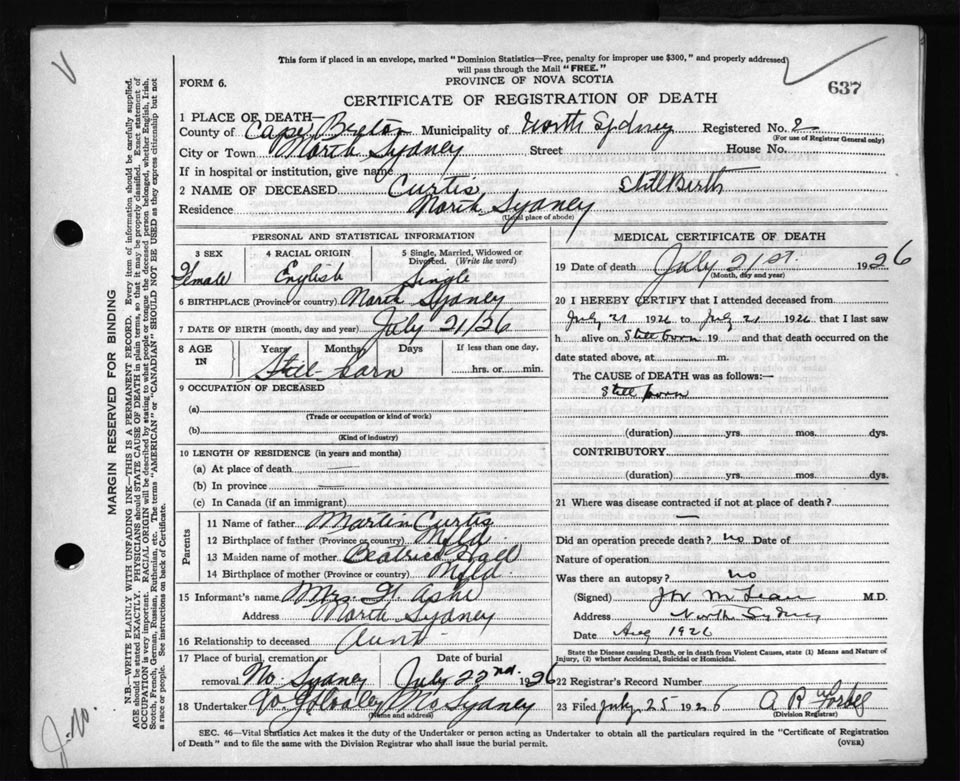 This form if placed in an envelope, marked "Dominion Statistics—Free, penalty for improper use $300," and properly addressed
will pass through the Mail "FREE."
637
FORM 6.
PROVINCE OF NOVA SCOTIA
CERTIFICATE OF REGISTRATION OF DEATH
1 PLACE OF DEATH—
County of Cape Breton Municipality of North Sydney Registered No. 2
(For use of Registrar General only)
City or Town North Sydney Street House No.
If in hospital or institution, give name
2 NAME OF DECEASED Curtis Still Birth
Residence North Sydney
(Usual place of abode)
PERSONAL AND STATISTICAL INFORMATION
3 SEX 4 RACIAL ORIGIN 5 Single, Married, Widowed or
Divorced. (Write the word)
Female English Single
6 BIRTHPLACE (Province or country) North Sydney
7 DATE OF BIRTH (month, day and year) July 21/26
8 AGE IN Years Months Days If less than one day,
Still born hrs. or min.
9 OCCUPATION OF DECEASED
(a)
(Trade or occupation or kind of work)
(b)
(Kind of industry)
10 LENGTH OF RESIDENCE (in years and months)
(a) At place of death —
(b) In province —
(c) In Canada (if an immigrant)
Parents
11 Name of father Martin Curtis
12 Birthplace of father (Province or country) Nfld
13 Maiden name of mother Beatrice Hall
14 Birthplace of mother (Province or country) Nfld.
15 Informant's name Mrs. Ashe
Address North Sydney
16 Relationship to deceased Aunt
17 Place of burial, cremation or Date of burial
removal No. Sydney July 22nd 1926
18 Undertaker No Sydney
(Name and address)
MEDICAL CERTIFICATE OF DEATH
19 Date of death July 21st. 1926
(Month, day and year)
20 I HEREBY CERTIFY that I attended deceased from
July 21 1926 to July 21 1926 that I last saw
h alive on Still born 19 and that death occurred on the
date stated above, at m.
The CAUSE of DEATH was as follows:—
Still born
(duration) yrs. mos. dys.
CONTRIBUTORY
(duration) yrs. mos. dys.
21 Where was disease contracted if not at place of death?
—
Did an operation precede death? no Date of
Nature of operation
Was there an autopsy? no
(Signed) McLean M.D.
Address North Sydney
Date Aug 1926
State the Disease causing Death, or in death from Violent Causes, state (1) Means and Nature of
Injury, (2) whether Accidental, Suicidal or Homicidal.
22 Registrar's Record Number
23 Filed July 25 1926 A R Forbes
(Division Registrar)
SEC. 46—Vital Statistics Act makes it the duty of the Undertaker or person acting as Undertaker to obtain all the particulars required in the "Certificate of Registration
of Death" and to file the same with the Division Registrar who shall issue the burial permit. (OVER)
MARGIN RESERVED FOR BINDING
N.B.—WRITE PLAINLY WITH UNFADING INK—THIS IS A PERMANENT RECORD. Every item of information should be carefully supplied.
AGE should be stated EXACTLY. PHYSICIANS should STATE CAUSE OF DEATH in plain terms, so that it may be properly classified. Exact statement of
OCCUPATION is very important. RACIAL ORIGIN will be described by stating to what people or tongue the deceased person belonged, whether English, Irish,
Scotch, French, German, Russian, Ruthenian, etc. The terms "AMERICAN" or "CANADIAN" SHOULD NOT BE USED as they express citizenship but not
a race or people. See instructions on back of Certificate.